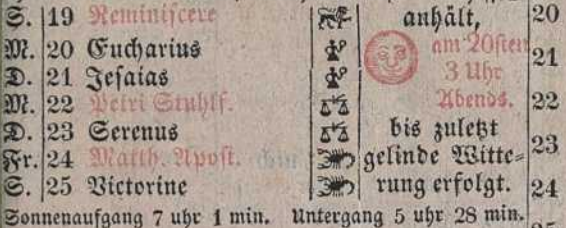 S. 19 Reminiscere anhält, 20
M. 20 Eucharius am 20sten 21
D. 21 Jesaias 3 Uhr
M. 22 Petri Stuhlf. Abends. 22
D. 23 Serenus bis zuletzt 23
Fr. 24 Matth. Apost. gelinde Witte=
S. 25 Victorine rung erfolgt. 24
Sonnenaufgang 7 uhr 1 min. Untergang 5 uhr 28 min.